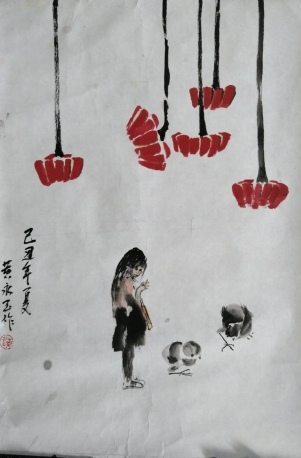 己丑年夏
黄永玉作